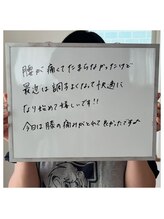 腰が痛くてたまらなかったけど
最近は調子よくなって快適に
なり始めて嬉しいです!!
今日は膝の痛みがとれて良かったです♪